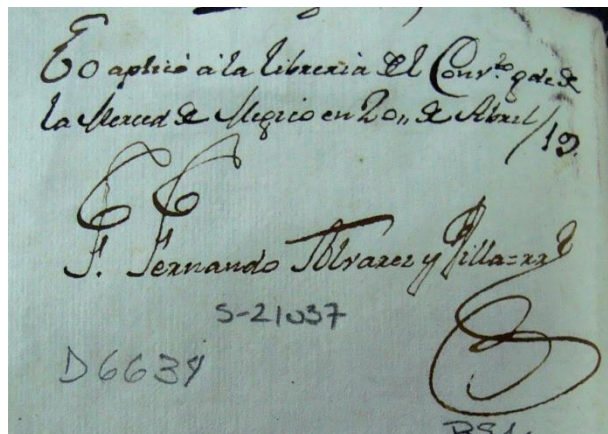 Lo aplicó a la libreria del Conv.to gde de
la Merced de Megico en 20,, de Abril/19.
F. Fernando Alvarez y Villa=rr.l
S-21037
D6639